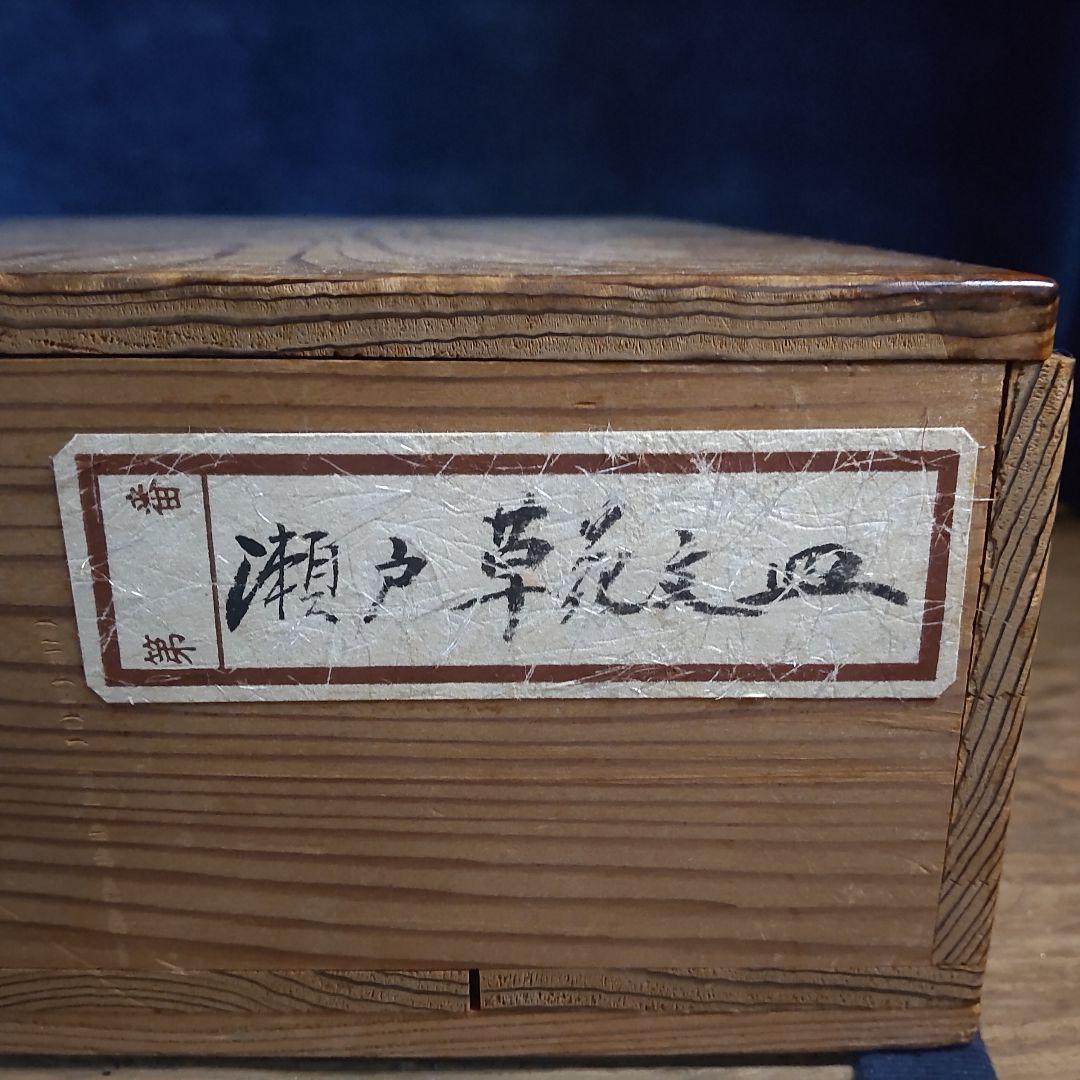 第 番
瀬戸草花文皿